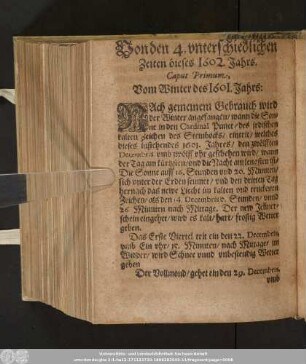 Von den 4. vnterschiedlichen
Zeiten dieses 1602. Jahrs.
Caput Primum,
Vom Winter des 1601. Jahrs:
NAch gemeinem Gebrauch wird
der Winter angefangen / wann die Son-
ne in den Cardinal Punct / des jrdischen
kalten Zeichen des Steinbocks / eintrit / welches
dieses lauffenden 1601. Jahres / den zwölfften
Decembris vmb zwölff vhr geschehen wird / wann
der Tag am kürtzsten / vnd die Nacht am lengsten ist:
Die Sonne auff 16. Stunden vnd 20. Minuten /
sich vnter der Erden seumet / vnd den dritten Tag
hernach das newe Liecht im kalten vnd truckenen
Zeichen / als den 14. Decembris / Stunden / vnnd
26 Minuten nach Mittage. Der new
schein eingehet / wird es kalt / hart / frostig Wetter
geben.
Das Erste Viertel trit ein den 22. Decembris
vmb Ein vhr / 12. Minuten / nach Mittage / im
Widder / wird Schnee vnnd vnbestendig Wetter
geben
Der Vollmond / gehet ein den 29. Decembris,
vmb